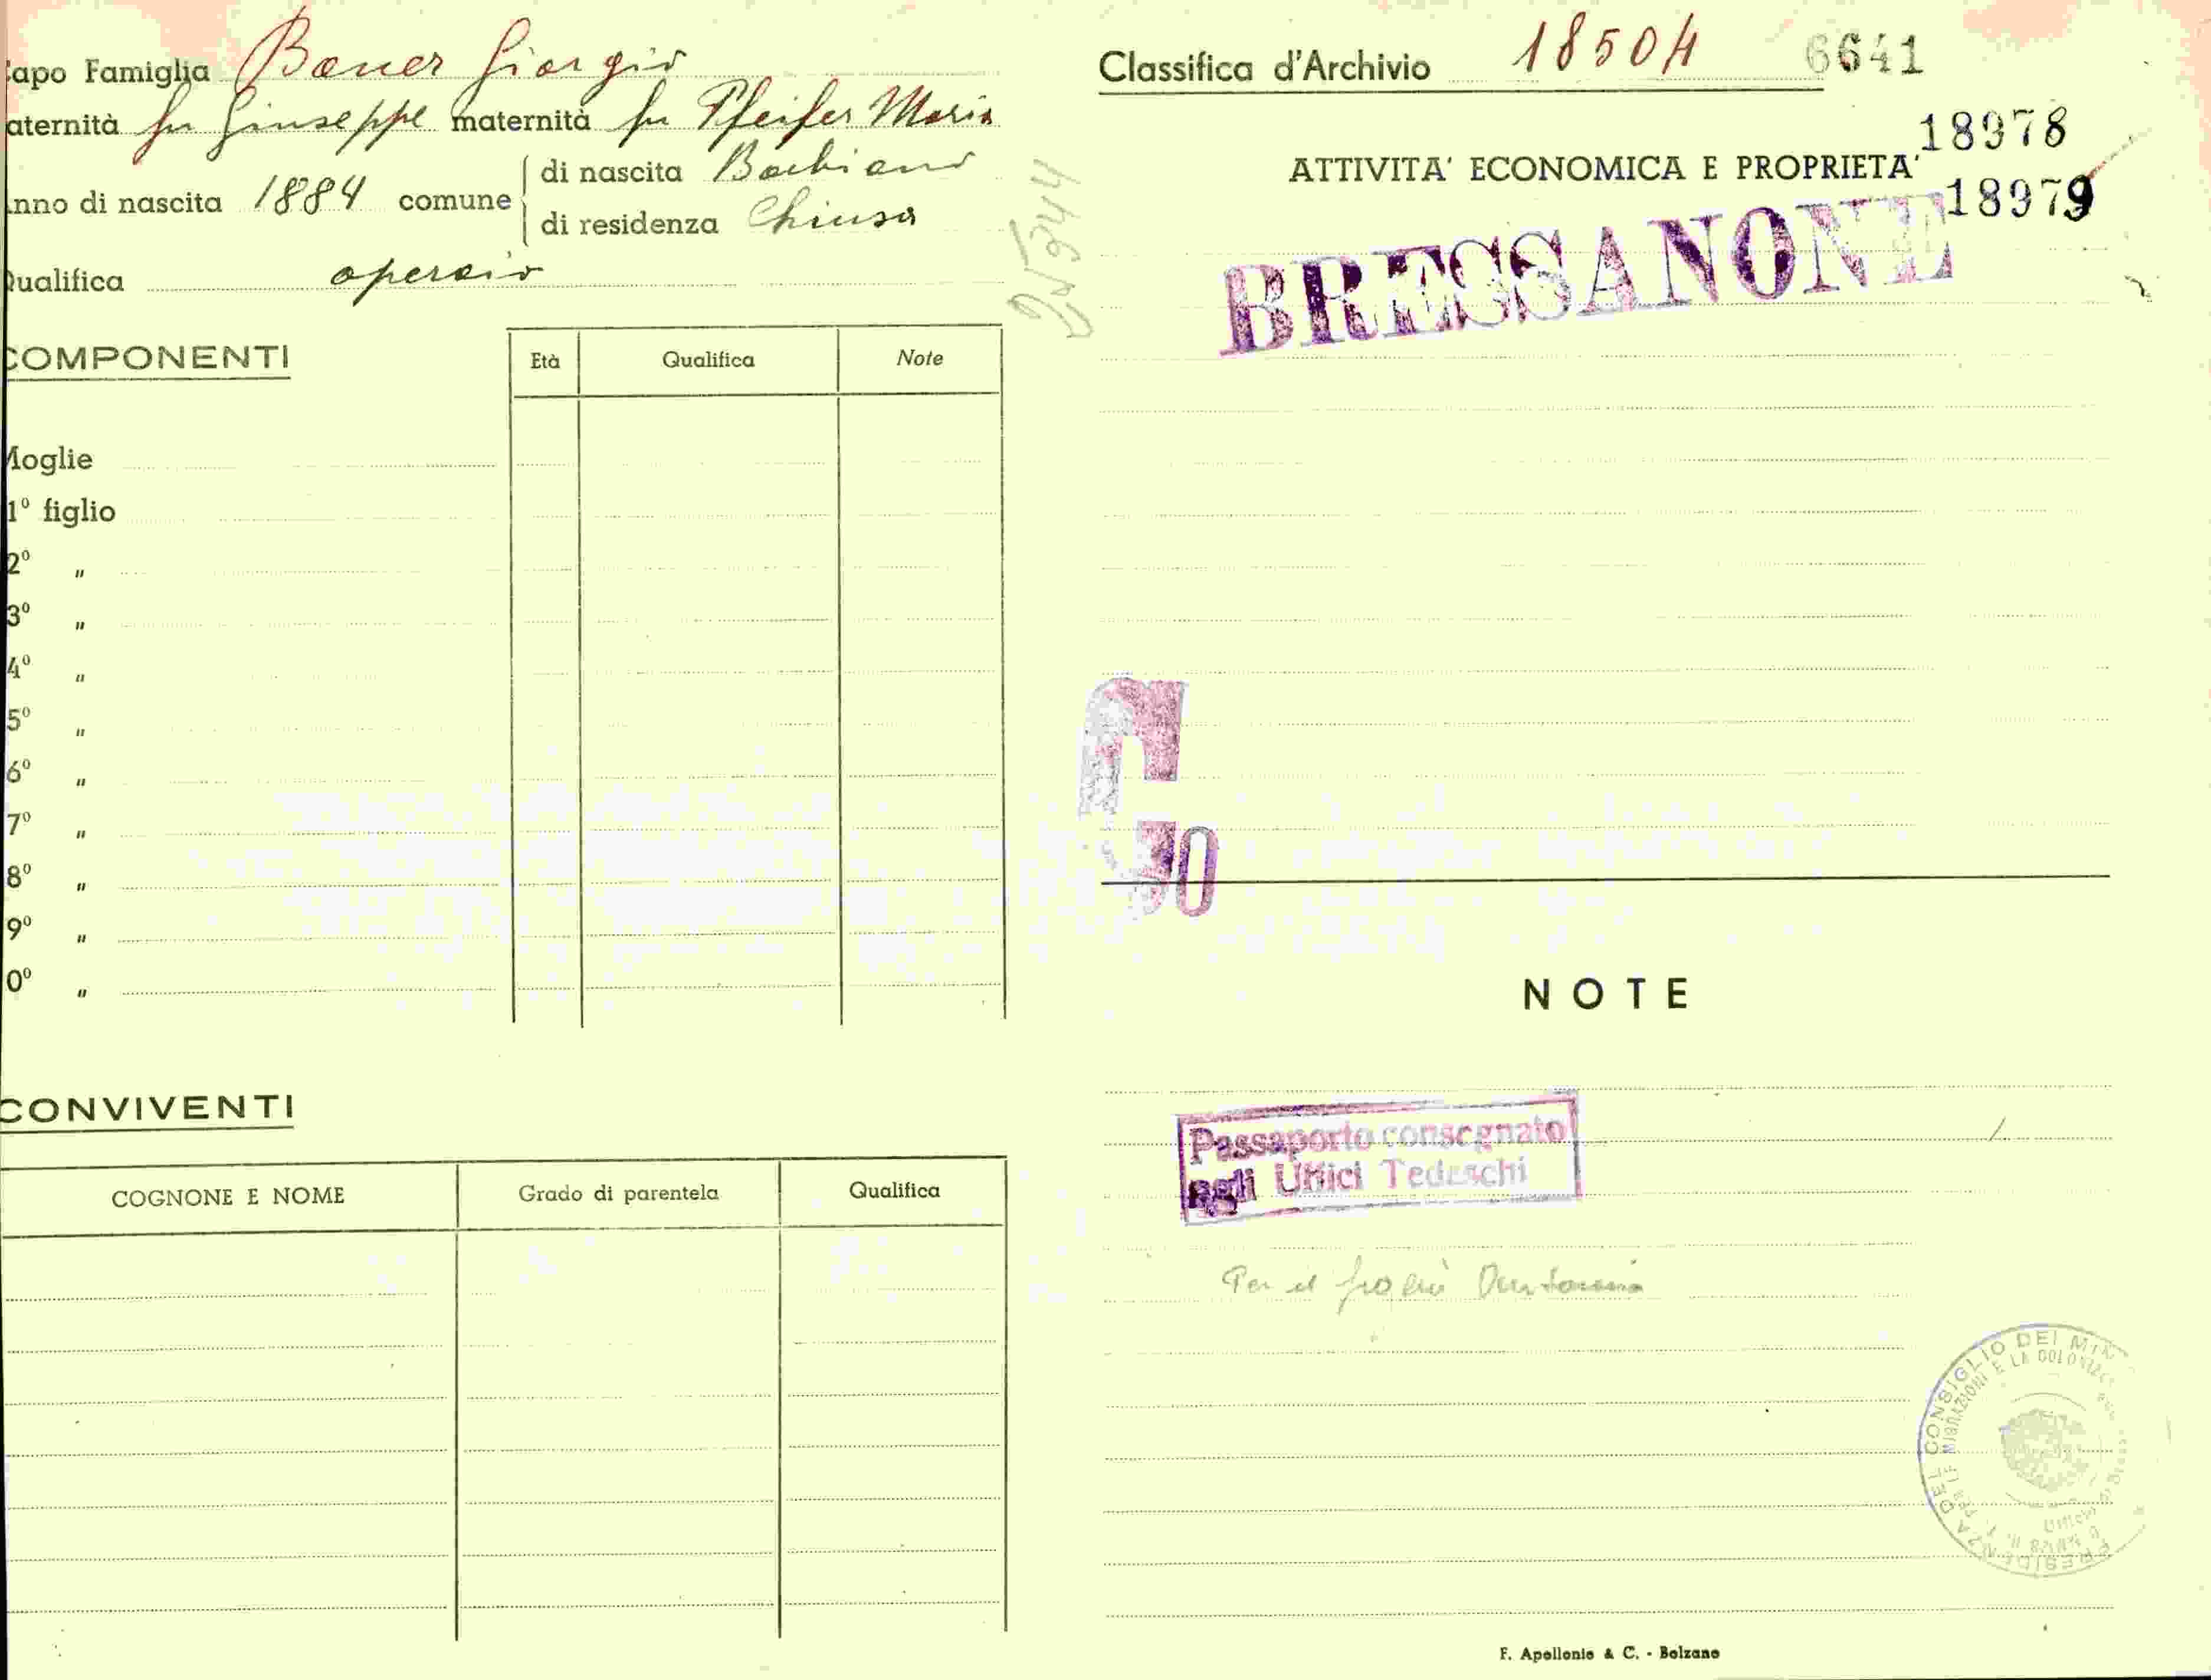 apo Famiglia Baner Giorgio
aternità fu Giuseppe maternità fu Pfeifer Maria
nno di nascita 1884 comune di nascita Barbiano
di residenza Chiusa
ualifica operaio
COMPONENTI Età Qualifica Note
Moglie
1º figlio
2º "
3º "
4º "
5º "
6º "
7º "
8º "
9º "
0º "
CONVIVENTI
COGNONE E NOME Grado di parentela Qualifica
Classifica d'Archivio 18504 6641
18978
ATTIVITA' ECONOMICA E PROPRIETA'
18979
BRESSANONE
NOTE
Passaporto consegnato
agli Uffici Tedeschi
Per il
PRESIDENZA DEL CONSIGLIO DEI MIN
F. Apollonio & C. - Bolzano